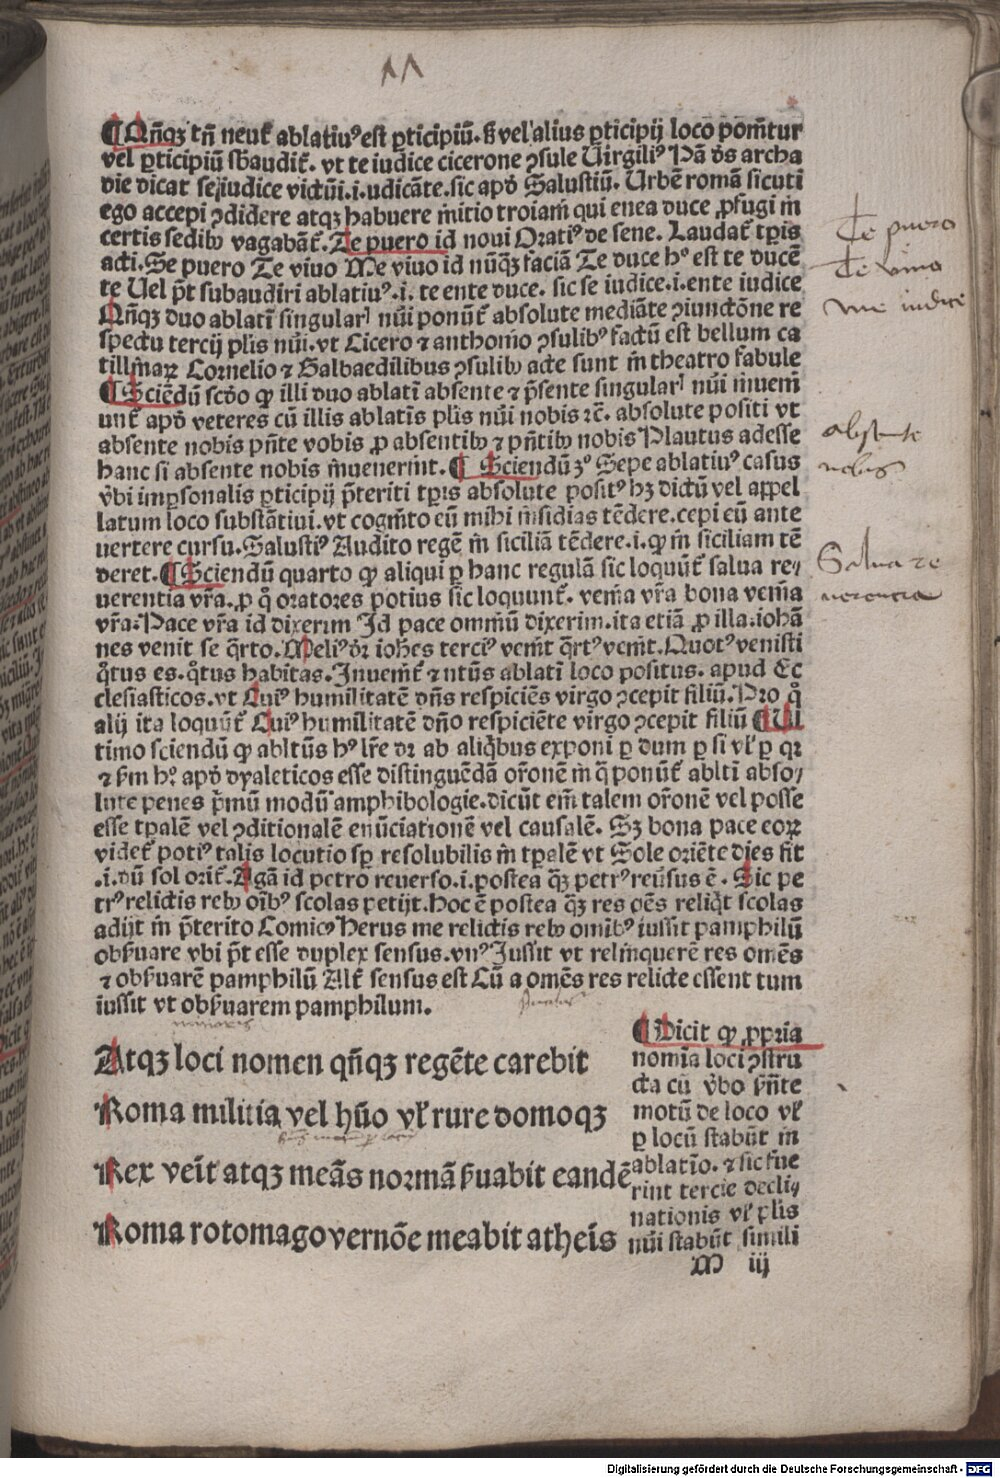 ¶ Qñqꝫ tñ neutͬ ablatiuꝰ est ꝑticipiū. sꝫ vel alius ꝑticipij loco pom̄tur
vel ꝑticipiū sbaudit᷑. vt te iudice cicerone ꝯsule Virgiliꝰ Pā ds archa
die dicat se iudice victū.i.iudicāte. sic apd Salustiū. Urbē romā sicuti
ego accepi ꝯdidere atqꝫ habuere initio troiani qui enea duce ꝓfugi in
certis sedibꝰ vagabāt᷑. Te puero id noui Oratiꝰ de sene. Laudat᷑ tꝑis
acti. Se puero Te viuo Me viuo id nūqꝫ faciā Te duce hͦ est te ducē
te Uel pt̄ subaudiri ablatiuꝰ.i. te ente duce. sic se iudice.i.ente iudice
Qñqꝫ duo ablatī singularꝭ nūi ponūt᷑ absolute mediāte ꝯiunctōne re
spectu tercij plis nūi. vt Cicero ⁊ anthonio ꝯsulibꝰ factū est bellum ca
tillinaꝝ Cornelio ⁊ Balbaedilibus ꝯsulibꝰ acte sunt in theatro fabule
¶ Sciēdū scdo ꝙ illi duo ablatī absente ⁊ p̄sente singularꝭ nūi inueni
unt᷑ apd veteres cū illis ablatīs plis nūi nobis ⁊c̄. absolute positi vt
absente nobis pn̄te vobis ꝓ absentibꝰ ⁊ pn̄tibꝰ nobis Plautus adesse
hanc si absente nobis inuenerint. ¶ Sciendū ꝫͦ Sepe ablatiuꝰ casus
vbi imꝑsonalis ꝑticipij p̄teriti tꝑis absolute positꝰ hꝫ dictū vel appel
latum loco substātiui. vt cognito eū mihi insidias tēdere. cepi eū ante
uertere cursu. Salustiꝰ Audito regē in siciliā tēdere.i. ꝙ in siciliam tē
deret. ¶ Sciendū quarto ꝙ aliqui ꝑ hanc regulā sic loquūt᷑ salua re/
uerentia vr̄a. ꝓ q̊ oratores potius sic loquunt᷑. venia vr̄a bona venia
vr̄a. Pace vr̄a id dixerim Id pace omniū dixerim. ita etiā ꝓ illa. iohā
nes venit se q̄rto. Meliꝰ dr̄ iohēs terciꝰ venit q̄rtꝰ venit. Quotꝰ venisti
q̊tus es. q̊tus habitas. Inuenit᷑ ⁊ ntūs ablatī loco positus. apud Ec
clesiasticos. vt Cuiꝰ humilitatē dn̄s respiciēs virgo ꝯcepit filiū. Pro q̊
alij ita loquūt᷑ Cuiꝰ humilitatē dn̄o respiciēte virgo ꝯcepit filiū ¶ Ul
timo sciendū ꝙ abltūs hꝰ lr̄e dꝫ ab aliq̄bus exponi ꝑ dum ꝑ si vl̓ ꝑ qꝛ
⁊ ẜm hͦ apd dyaleticos esse distinguēdā or̄onē in q̄ ponūt᷑ abltī abso/
lute penes p̄mū modū amphibologie. dicūt em̄ talem or̄onē vel posse
esse tꝑalē vel ꝯditionalē enūciationē vel causalē. Sꝫ bona pace eoꝝ
videt᷑ potiꝰ talis locutio sꝑ resolubilis in tꝑalē vt Sole oriēte dies fit
.i. dū sol orit᷑. Agā id petro reuerso.i. postea qꝫ petrꝰ reūsus ē. Sic pe
trꝰ relictis rebꝰ oībꝰ scolas petijt. hoc ē postea qꝫ res oēs reliq̄t scolas
adijt in p̄terito Comicꝰ Herus me relictis rebꝰ omībꝰ iussit pamphilū
obẜuare vbi pt̄ esse duplex sensus. vnꝰ Iussit vt relinquerē res omēs
⁊ obẜuarē pamphilū Alt᷑ sensus est Cū a omēs res relicte essent tum
iussit vt obẜuarem pamphilum.
Atqꝫ loci nomen qn̄qꝫ regēte carebit
Roma militia vel hūo vl̓ rure domoqꝫ
Rex veīt atqꝫ meās normā ẜuabit eandē
Roma rotomago vernōe meabit atheīs
¶ Dicit ꝙ ꝓpria
nomīa loci ꝯstru
cta cū v̓bo ẜn̄te
motū de loco vl̓
ꝑ locū stabūt in
ablatīo. ⁊ sic fue
rint tercie decli/
nationis vl̓ plis
nūi stabūt simili
M iij
Te puero
Te viuo
me iudice
absente
nobis
Salua re
uerencia